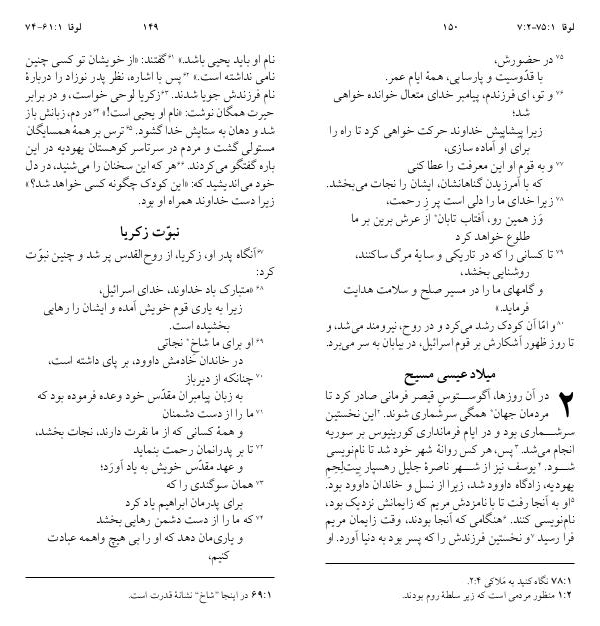 لوقا ۶۱:۱-۷۴
۱۴۹
نام او باید یحیی باشد.» ⁶¹گفتند: «از خویشان تو کسی چنین
نامی نداشته است.» ⁶²پس با اشاره، نظر پدر نوزاد را دربارهٔ
نام فرزندش جویا شدند. ⁶³زکریا لوحی خواست، و در برابر
حیرت همگان نوشت: «نام او یحیی است!» ⁶⁴در دم، زبانش باز
شد و دهان به ستایش خدا گشود. ⁶⁵ترس بر همهٔ همسایگان
مستولی گشت و مردم در سرتاسر کوهستان یهودیه در این
باره گفتگو می‌کردند. ⁶⁶هر که این سخنان را می‌شنید، در دل
خود می‌اندیشید که: «این کودک چگونه کسی خواهد شد؟»
زیرا دست خداوند همراه او بود.
نبوّت زکریا
⁶⁷آنگاه پدر او، زکریا، از روح‌القدس پر شد و چنین نبوّت
کرد:
⁶⁸ «متبارک باد خداوند، خدای اسرائیل،
زیرا به یاری قوم خویش آمده و ایشان را رهایی
بخشیده است.
⁶⁹ او برای ما شاخ* نجاتی
در خاندان خادمش داوود، بر پای داشته است،
⁷⁰ چنانکه از دیرباز
به زبان پیامبران مقدّس خود وعده فرموده بود که
⁷¹ ما را از دست دشمنان
و همهٔ کسانی که از ما نفرت دارند، نجات بخشد،
⁷² تا بر پدرانمان رحمت بنماید
و عهد مقدّس خویش به یاد آوَرَد؛
⁷³ همان سوگندی را که
برای پدرمان ابراهیم یاد کرد
⁷⁴ که ما را از دست دشمن رهایی بخشد
و یاری‌مان دهد که او را بی هیچ واهمه عبادت
کنیم،
۶۹:۱ در اینجا ”شاخ“ نشانهٔ قدرت است.
لوقا ۷۵:۱-۷:۲
۱۵۰
⁷⁵ در حضورش،
با قدّوسیت و پارسایی، همهٔ ایام عمر.
⁷⁶ و تو، ای فرزندم، پیامبر خدای متعال خوانده خواهی
شد؛
زیرا پیشاپیش خداوند حرکت خواهی کرد تا راه را
برای او آماده سازی،
⁷⁷ و به قوم او این معرفت را عطا کنی
که با آمرزیدن گناهانشان، ایشان را نجات می‌بخشد.
⁷⁸ زیرا خدای ما را دلی است پر زِ رحمت،
وَز همین رو، آفتاب تابان* از عرش برین بر ما
طلوع خواهد کرد
⁷⁹ تا کسانی را که در تاریکی و سایهٔ مرگ ساکنند،
روشنایی بخشد،
و گامهای ما را در مسیر صلح و سلامت هدایت
فرماید.»
⁸⁰ و امّا آن کودک رشد می‌کرد و در روح، نیرومند می‌شد، و
تا روز ظهور آشکارش بر قوم اسرائیل، در بیابان به سر می‌برد.
میلاد عیسی مسیح
۲ در آن روزها، آگوستوسِ قیصر فرمانی صادر کرد تا
مردمان جهان* همگی سرشماری شوند. ²این نخستین
سرشماری بود و در ایام فرمانداری کورینیوس بر سوریه
انجام می‌شد. ³پس، هر کس روانهٔ شهر خود شد تا نام‌نویسی
شود. ⁴یوسف نیز از شهر ناصرهٔ جلیل رهسپار بِیت‌لِحِمِ
یهودیه، زادگاه داوود شد، زیرا از نسل و خاندان داوود بود.
⁵او به آنجا رفت تا با نامزدش مریم که زایمانش نزدیک بود،
نام‌نویسی کنند. ⁶هنگامی که آنجا بودند، وقت زایمان مریم
فرا رسید ⁷و نخستین فرزندش را که پسر بود به دنیا آورد. او
۷۸:۱ نگاه کنید به مَلاکی ۲:۴.
۱:۲ منظور مردمی است که زیر سلطهٔ روم بودند.